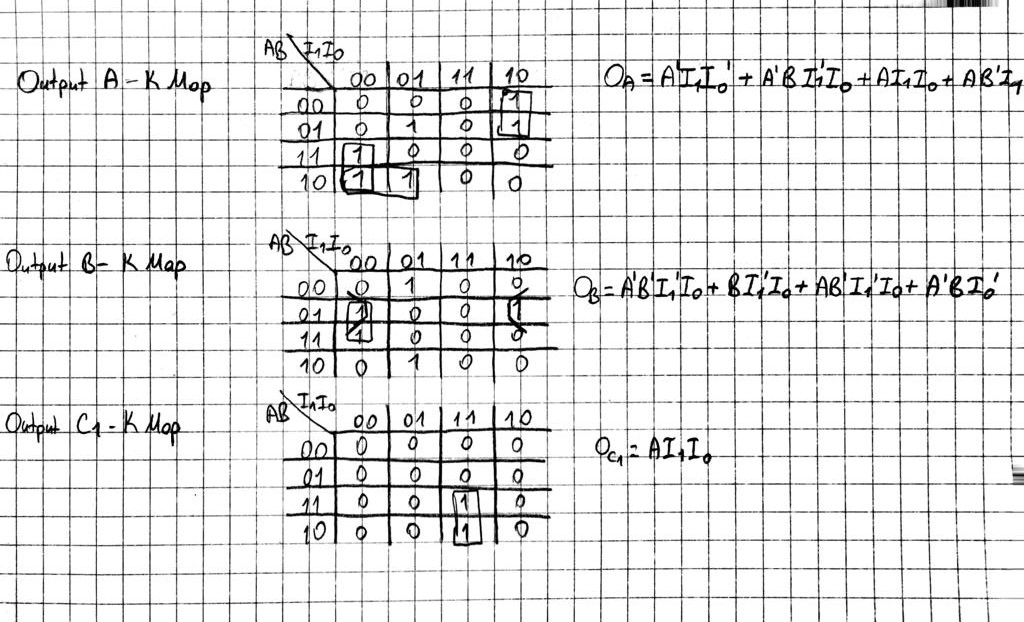 AB I₁I₀
Output A - K Map
00 01 11 10
00 0 0 0 1
01 0 1 0 1
11 1 0 0 0
10 1 1 0 0
O_A = A'I₁I₀' + A'BI₁'I₀ + AI₁I₀ + AB'I₁
AB I₁I₀
Output B - K Map
00 01 11 10
00 0 1 0 0
01 1 0 0 1
11 1 0 0 0
10 0 1 0 0
O_B = A'B'I₁'I₀ + BI₁'I₀ + AB'I₁'I₀ + A'BI₀'
AB I₁I₀
Output C1 - K Map
00 01 11 10
00 0 0 0 0
01 0 0 0 0
11 0 0 1 0
10 0 0 1 0
O_C₁ = AI₁I₀